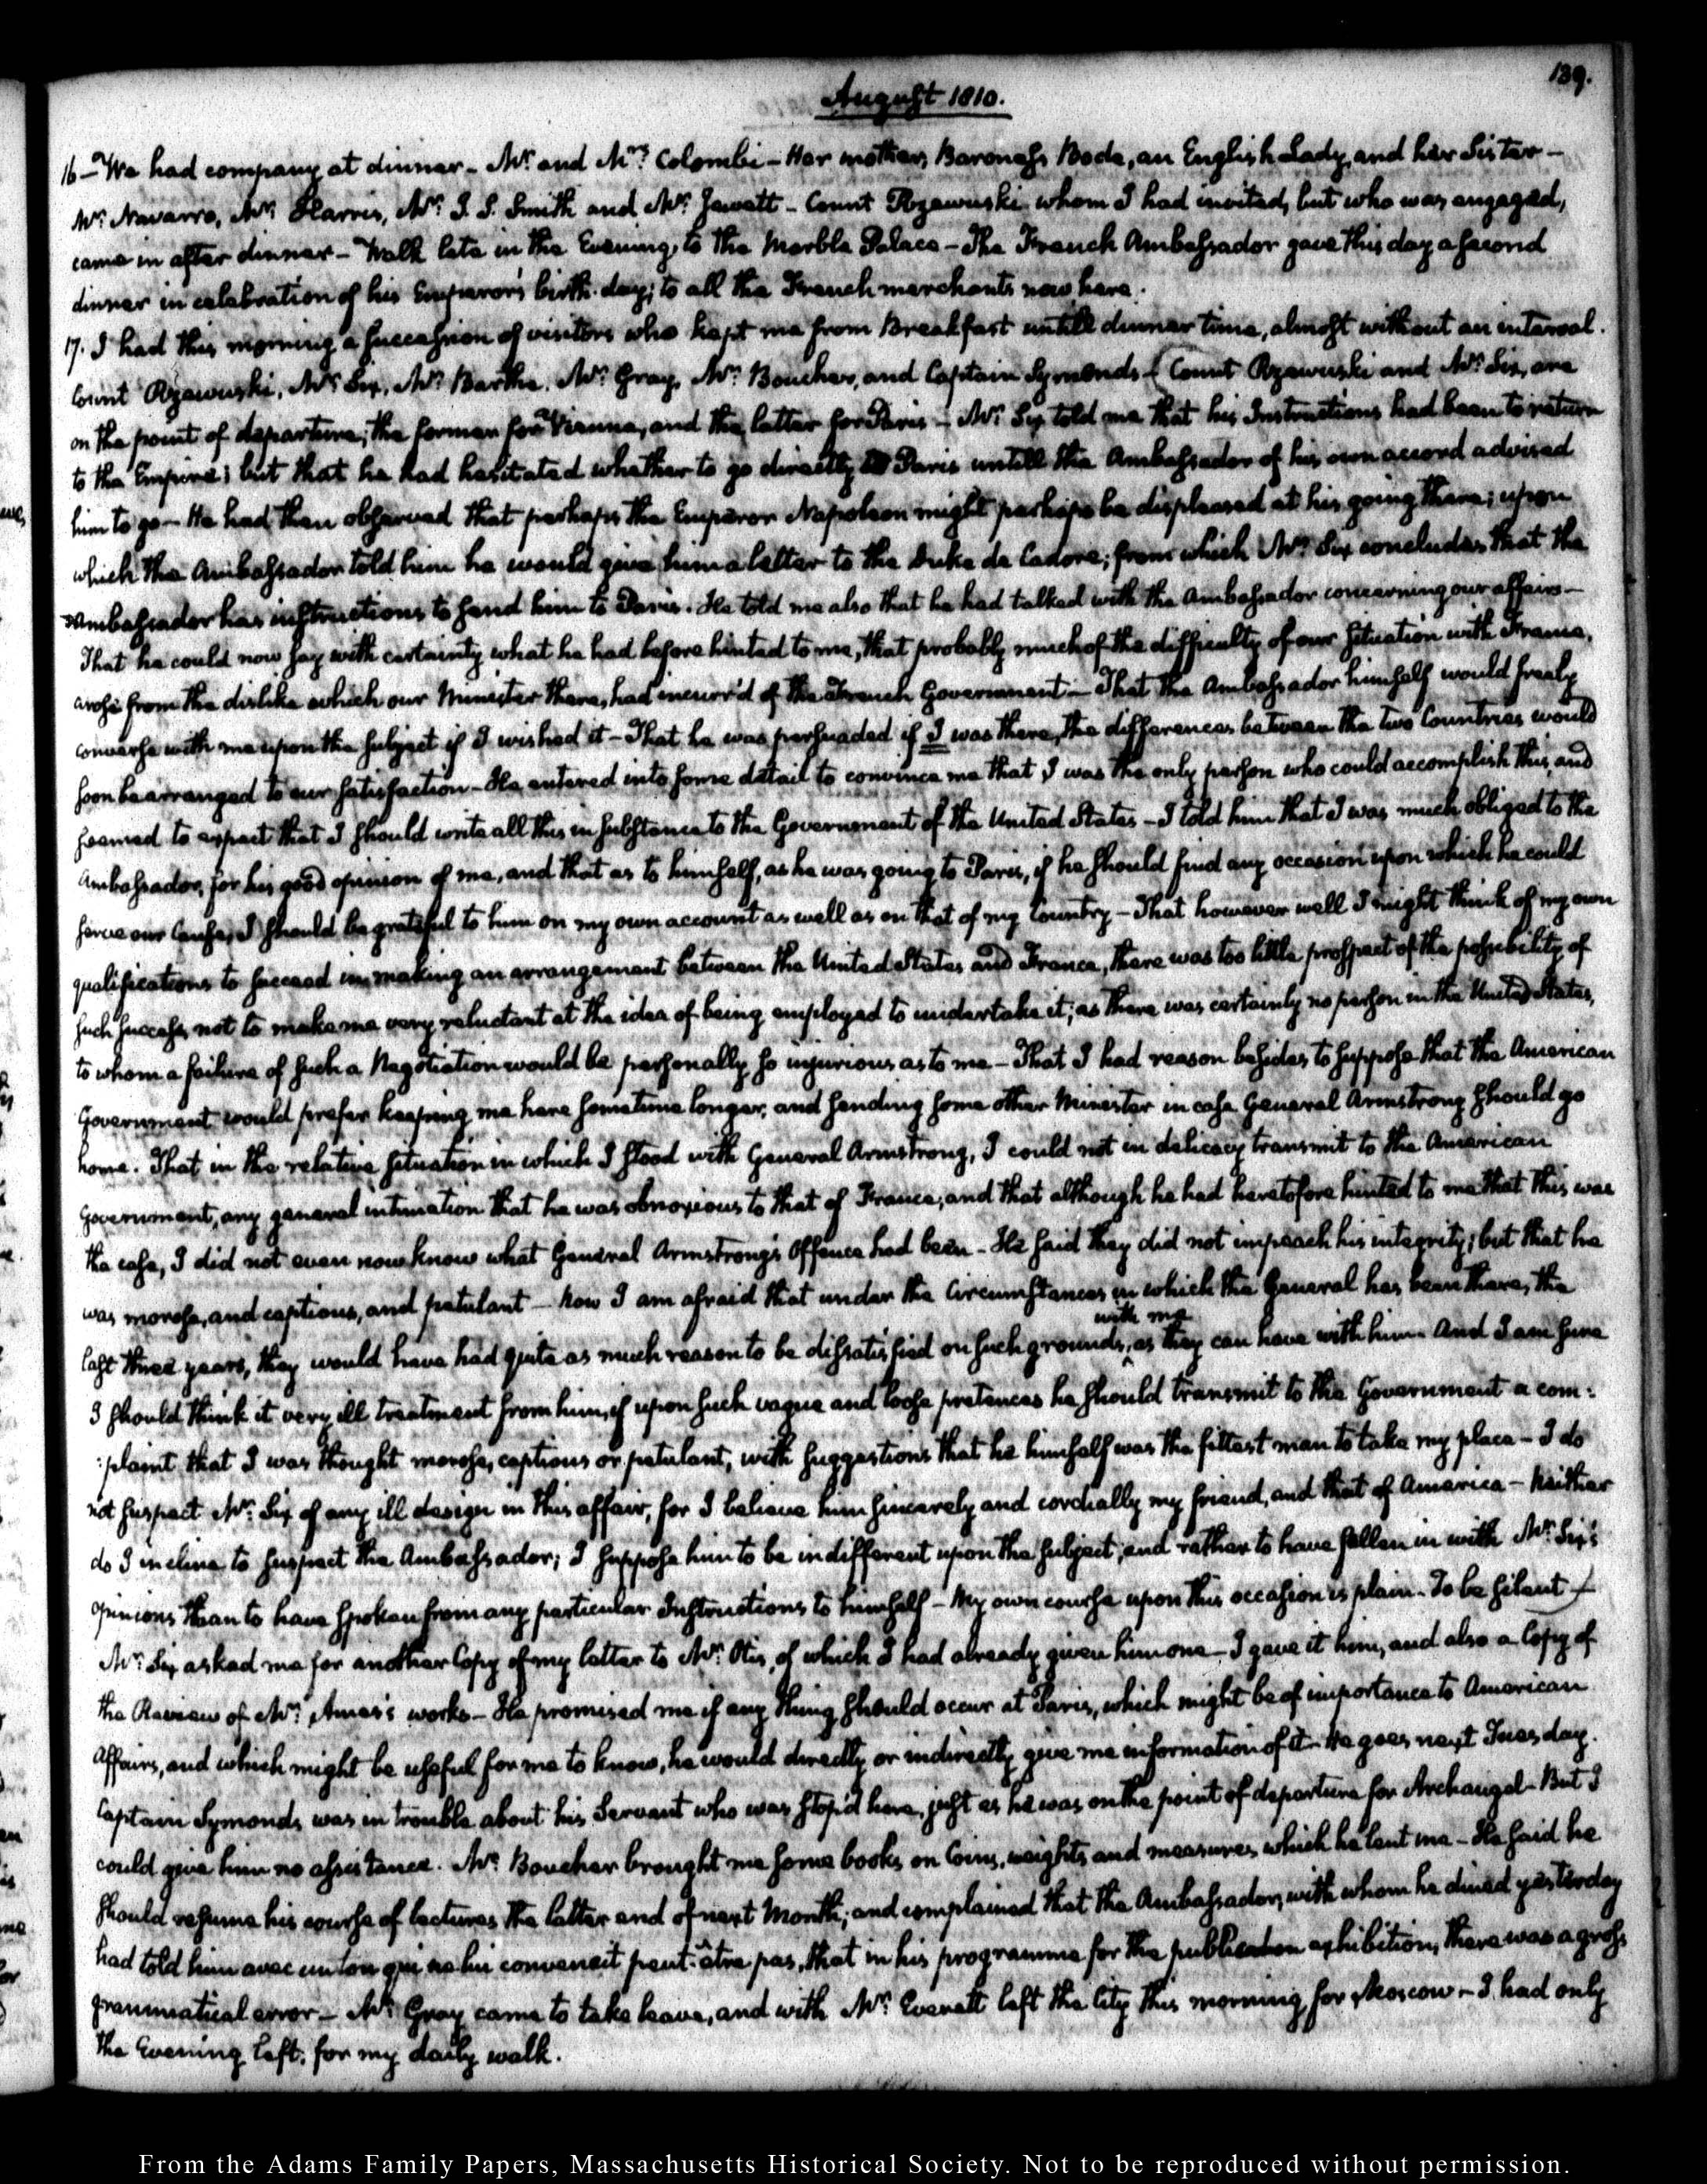 139.
August 1810.
16 – We had company at dinner – Mr. and Mrs. Colombi – Her mother, Baroness Bode, an English Lady, and her Sister –
Mr. Navarro, Mr. Harris, Mr. J. S. Smith and Mr. Jewett – Count Rzewuski whom I had invited, but who was engaged,
came in after dinner – Walk late in the Evening, to the Marble Palace – The French Ambassador gave this day a second
dinner in celebration of his Emperor's birth-day; to all the French merchants now here.
17. I had this morning a succession of visitors who kept me from Breakfast untill dinner time, almost without an interval.
Count Rzewuski, Mr. Six, Mr. Barthe, Mr. Gray, Mr. Boucher, and Captain Symonds – Count Rzewuski and Mr. Six, are
on the point of departure; the former for Vienna, and the latter for Paris – Mr. Six told me that his Instructions had been to return
to the Empire; but that he had hesitated whether to go directly to Paris untill the Ambassador of his own accord advised
him to go – He had then observed that perhaps the Emperor Napoleon might perhaps be displeased at his going there; upon
which the Ambassador told him he would give him a letter to the Duke de Cadore; from which Mr. Six concludes that the
Ambassador has instructions to send him to Paris. He told me also that he had talked with the Ambassador concerning our affairs –
That he could now say with certainty what he had before hinted to me, that probably much of the difficulty of our situation with France,
arose from the dislike which our Minister there, had incurr'd of the French Government – That the Ambassador himself would freely
converse with me upon the subject if I wished it – That he was persuaded if I was there, the differences between the two Countries would
soon be arranged to our satisfaction – He entered into some detail to convince me that I was the only person who could accomplish this, and
seemed to expect that I should write all this in substance to the Government of the United States – I told him that I was much obliged to the
Ambassador, for his good opinion of me, and that as to himself, as he was going to Paris, if he should find any occasion upon which he could
serve our Cause, I should be grateful to him on my own account as well as on that of my Country – That however well I might think of my own
qualifications to succeed in making an arrangement between the United States and France, there was too little prospect of the possibility of
such success, not to make me very reluctant at the idea of being employed to undertake it; as there was certainly no person in the United States,
to whom a failure of such a Negotiation would be personally so injurious as to me – That I had reason besides to suppose that the American
Government would prefer keeping me here sometime longer, and sending some other Minister in case General Armstrong should go
home. That in the relative situation in which I stood with General Armstrong, I could not in delicacy transmit to the American
Government, any general intimation that he was obnoxious to that of France; and that although he had heretofore hinted to me that this was
the case, I did not even now know what General Armstrong's Offence had been – He said they did not impeach his integrity; but that he
was morose, and captious, and petulant – Now I am afraid that under the Circumstances in which the General has been there, the
with me
last three years, they would have had quite as much reason to be dissatisfied on such grounds, as they can have with him. And I am sure
I should think it very ill treatment from him, if upon such vague and loose pretences he should transmit to the Government a com:
:plaint that I was thought morose, captious or petulant, with suggestions that he himself was the fittest man to take my place – I do
not suspect Mr. Six of any ill design in this affair, for I believe him sincerely and cordially my friend, and that of America – Neither
do I incline to suspect the Ambassador; I suppose him to be indifferent upon the subject, and rather to have fallen in with Mr. Six's
opinions than to have spoken from any particular Instructions to himself – My own course upon this occasion is plain. To be silent –
Mr. Six asked me for another Copy of my letter to Mr. Otis, of which I had already given him one – I gave it him, and also a Copy of
the Review of Mr. Ames's works – He promised me if any thing should occur at Paris, which might be of importance to American
Affairs, and which might be useful for me to know, he would directly or indirectly give me information of it – He goes next Tuesday.
Captain Symonds was in trouble about his Servant who was stop'd here, just as he was on the point of departure for Archangel – But I
could give him no assistance. Mr. Boucher brought me some books on Coins, weights and measures which he lent me – He said he
should resume his course of lectures the latter end of next Month; and complained that the Ambassador, with whom he dined yesterday
had told him avec un ton qui ne lui convenait peut-être pas, that in his programme for the publication exhibition, there was a gross
grammatical error – Mr. Gray came to take leave, and with Mr. Everett left the City this morning for Moscow – I had only
the Evening left, for my daily walk.
From the Adams Family Papers, Massachusetts Historical Society. Not to be reproduced without permission.